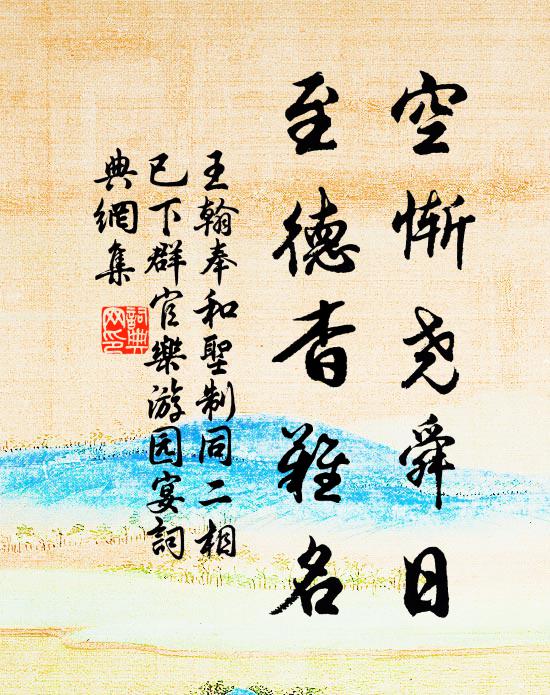 空惭尧舜日
至德杳難名
王翰奉和聖制同二相
已下群官樂游园宴詞
典網集
詞典
网印